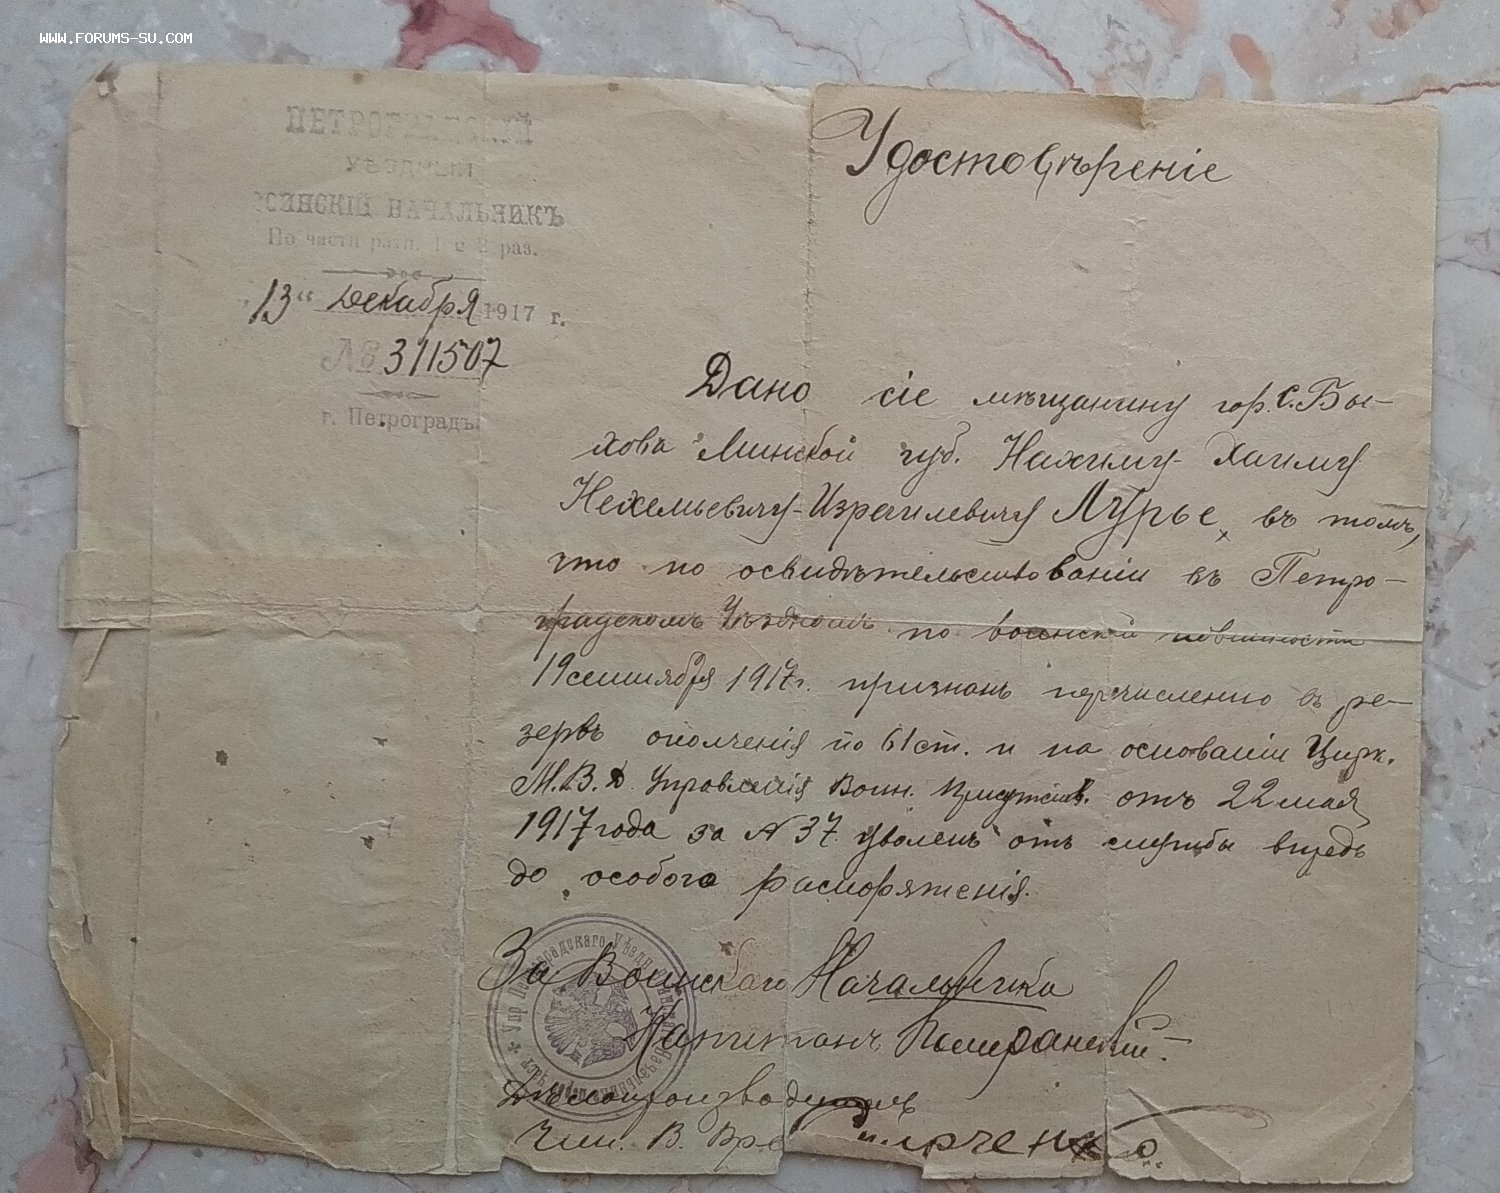 WWW.FORUMS-SU.COM
ПЕТРОГРАДСКІЙ
УѢЗДНЫЙ
ВОИНСКІЙ НАЧАЛЬНИКЪ
По части ратн. 1 и 2 раз.
„13“ Декабря 1917 г.
№ 311507
г. Петроградъ
Удостовѣреніе
Дано сіе мѣщанину гор. С. Бы-
хова Минской губ. Нахиму-Хаиму
Нехемьевичу-Израилевичу Лурье, въ томъ,
что по освидѣтельствованіи въ Петро-
градскомъ Уѣздномъ по воинской повинности
19 сентября 1917 г. признанъ перечисленію въ ре-
зервъ ополченія по 61 ст. и на основаніи Цирк.
М.В.Д. Управленія Воин. отъ 22 мая
1917 года за № 37 уволенъ отъ службы впредь
до особаго распоряженія.
За Воинскаго Начальника
Капитанъ
Дѣлопроизводитель
Чин. В. Вр.
Упр. Петроградскаго Уѣздн. Воинскаго Начальника